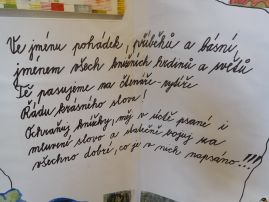 Ve jménu pohádek, příběhů a básní,
jménem všech knižních hrdinů a světů
Tě pasujeme na čtenáře-rytíře
Řádu krásného slova!
Ochraňuj knížky, měj v úctě psané i
mluvené slovo a statečně bojuj za
všechno dobré, co je v nich napsáno...!!!